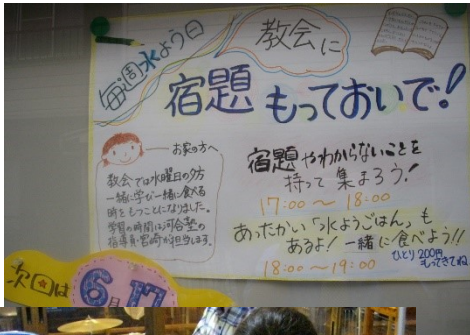 毎週水よう日
教会に
宿題もっておいで!
お家の方へ
教会では水曜日の夕方
一緒に学び一緒に食べる
時をもつことになりました。
学習の時間は河合塾の
指導員・宮崎が担当します。
宿題やわからないことを
持って集まろう!
17:00〜18:00
あったかい「水ようごはん」も
あるよ!一緒に食べよう!!
18:00〜19:00
ひとり200円
もってきてね
次回は
6月17